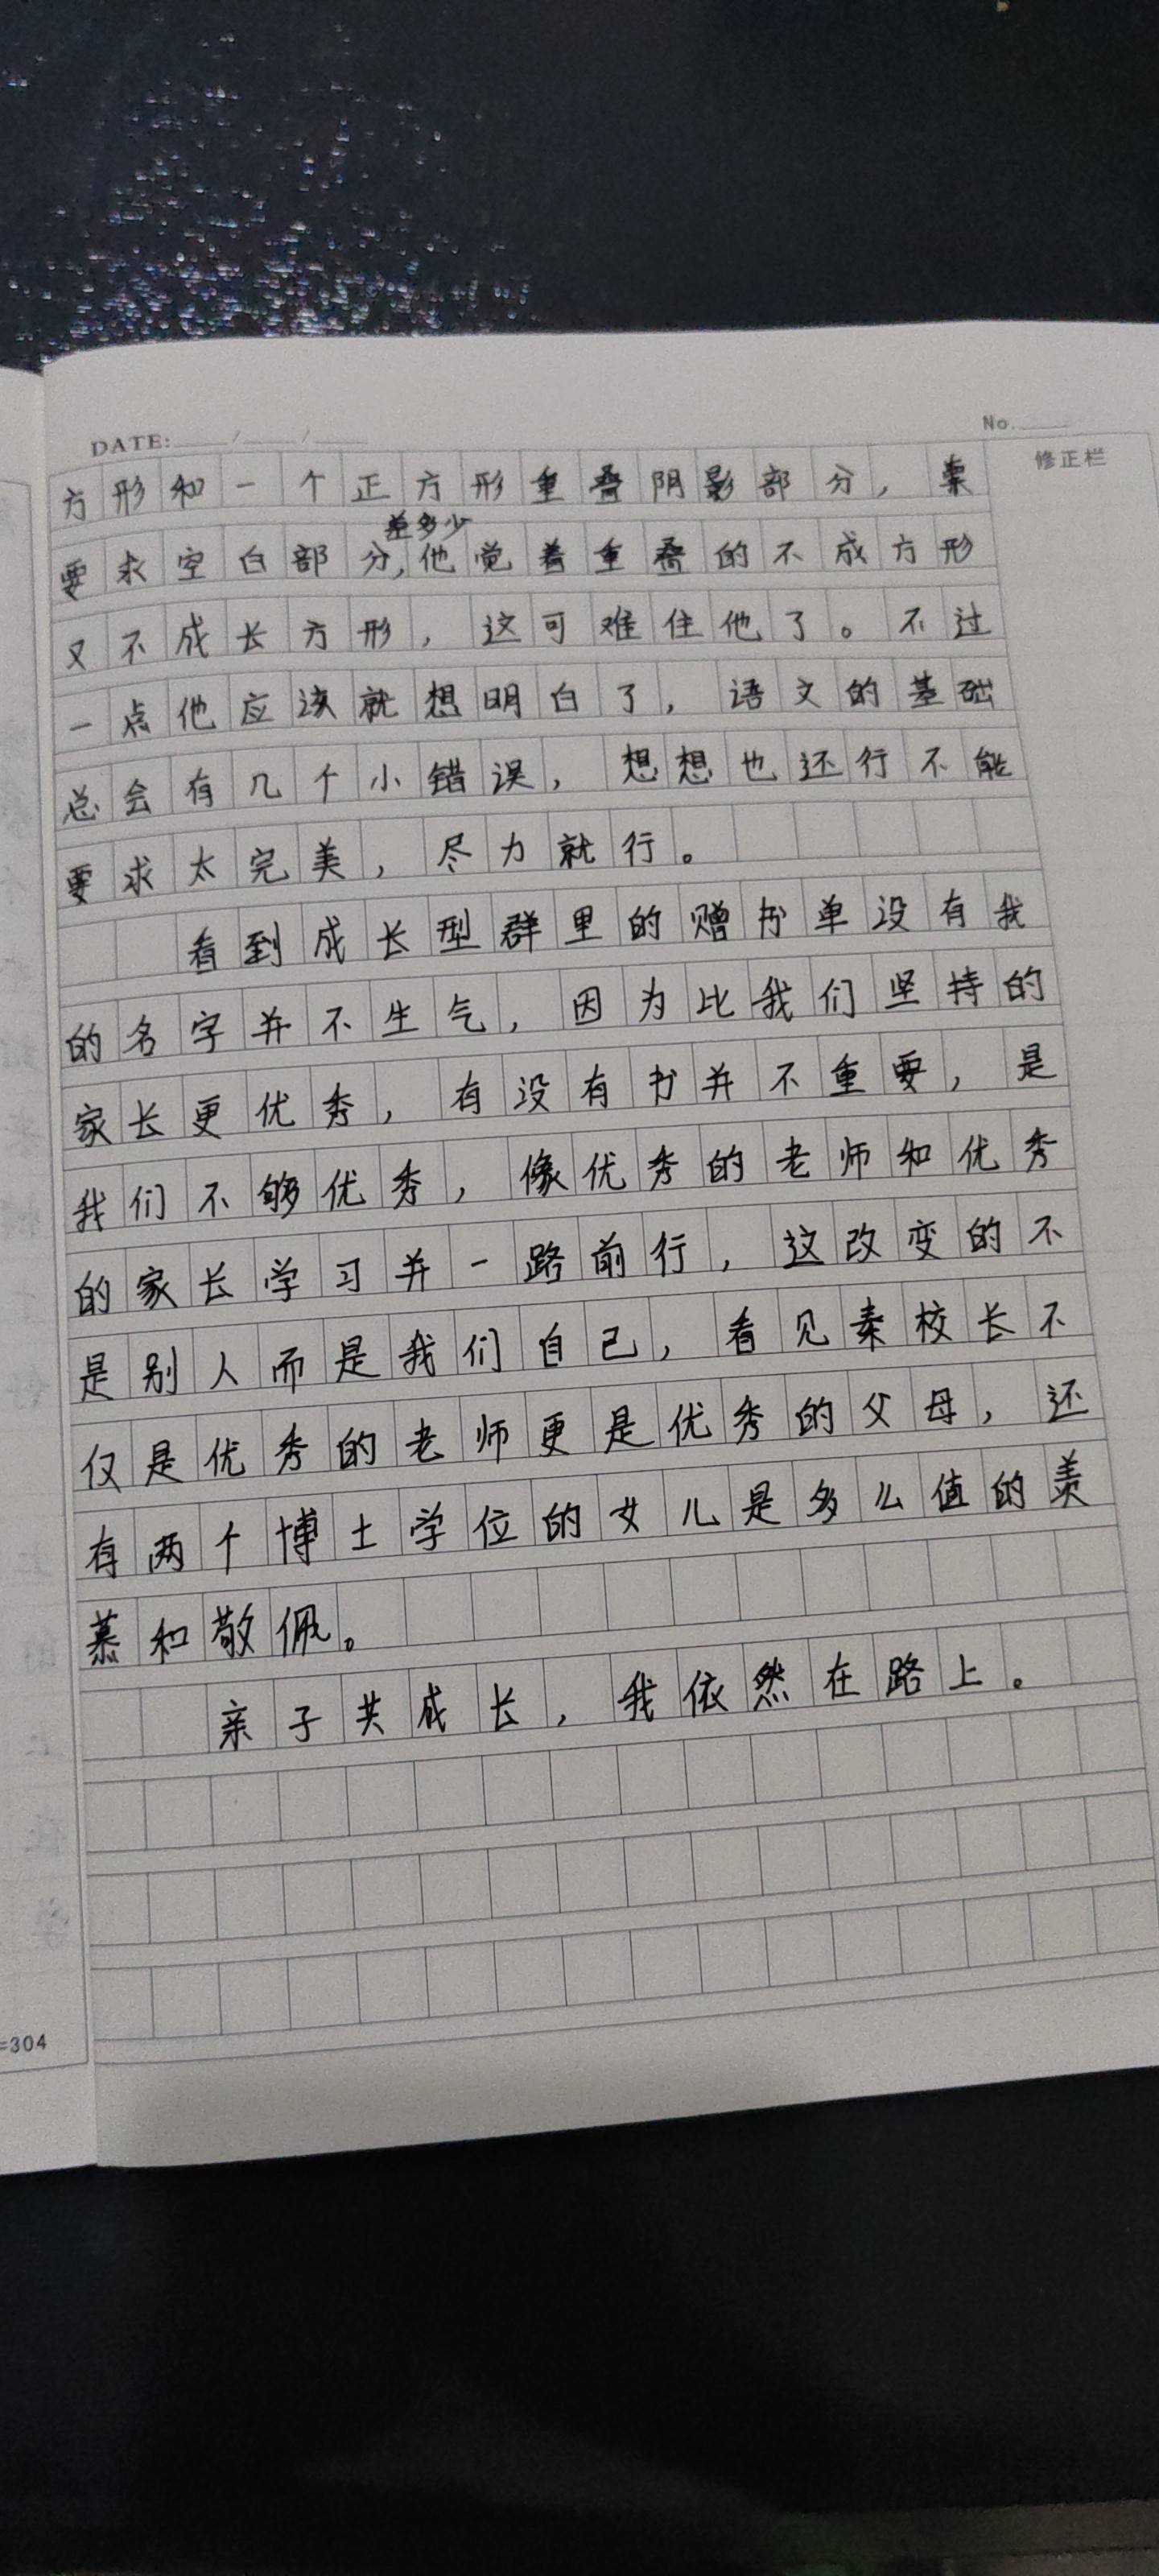 DATE: / /
No.
修正栏
方形和一个正方形重叠阴影部分，
差多少
要求空白部分，他觉着重叠的不成方形
又不成长方形，这可难住他了。不过
一点他应该就想明白了，语文的基础
总会有几个小错误，想想也还行不能
要求太完美，尽力就行。
看到成长型群里的赠书单没有我
的名字并不生气，因为比我们坚持的
家长更优秀，有没有书并不重要，是
我们不够优秀，像优秀的老师和优秀
的家长学习并一路前行，这改变的不
是别人而是我们自己，看见秦校长不
仅是优秀的老师更是优秀的父母，还
有两个博士学位的女儿是多么值的羡
慕和敬佩。
亲子共成长，我依然在路上。
=304